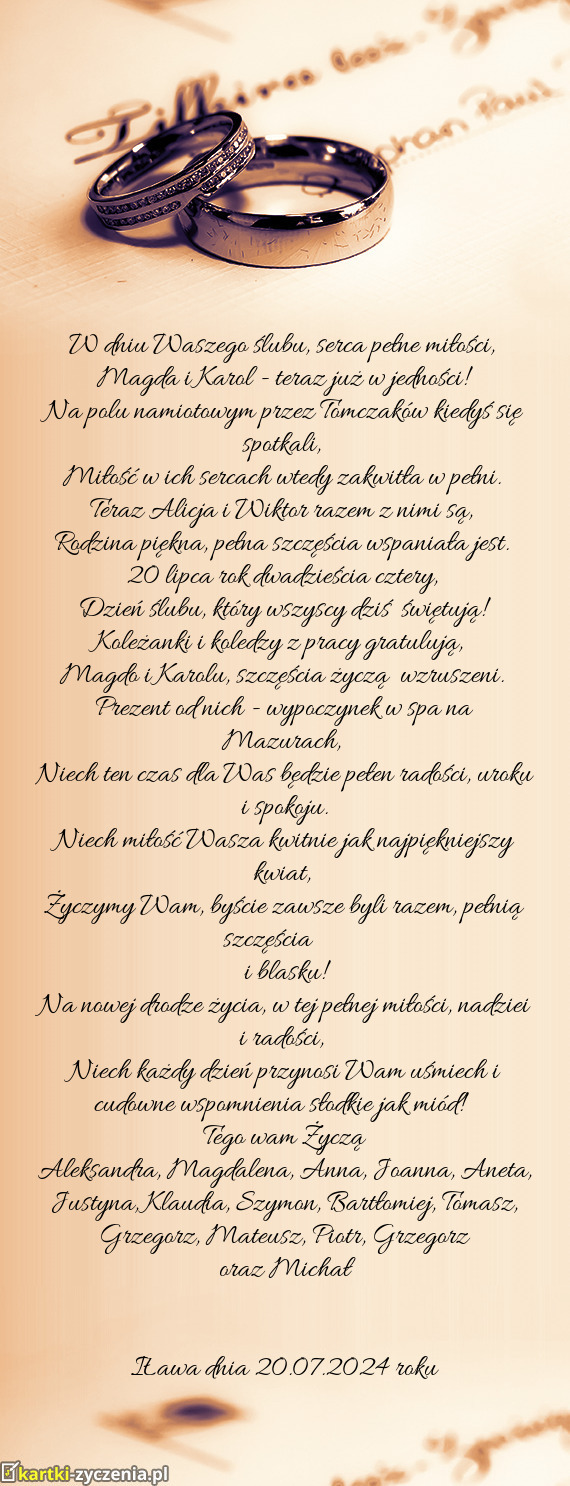 W dniu Waszego ślubu, serca pełne miłości,
Magda i Karol - teraz już w jedności!
Na polu namiotowym przez Tomczaków kiedyś się
spotkali,
Miłość w ich sercach wtedy zakwitła w pełni.
Teraz Alicja i Wiktor razem z nimi są,
Rodzina piękna, pełna szczęścia wspaniała jest.
20 lipca rok dwadzieścia cztery,
Dzień ślubu, który wszyscy dziś świętują!
Koleżanki i koledzy z pracy gratulują,
Magdo i Karolu, szczęścia życzą wzruszeni.
Prezent od nich - wypoczynek w spa na
Mazurach,
Niech ten czas dla Was będzie pełen radości, uroku
i spokoju.
Niech miłość Wasza kwitnie jak najpiękniejszy
kwiat,
Życzymy Wam, byście zawsze byli razem, pełnią
szczęścia
i blasku!
Na nowej drodze życia, w tej pełnej miłości, nadziei
i radości,
Niech każdy dzień przynosi Wam uśmiech i
cudowne wspomnienia słodkie jak miód!
Tego wam Życzą
Aleksandra, Magdalena, Anna, Joanna, Aneta,
Justyna, Klaudia, Szymon, Bartłomiej, Tomasz,
Grzegorz, Mateusz, Piotr, Grzegorz
oraz Michał
IŁawa dnia 20.07.2024 roku
kartki-zyczenia.pl